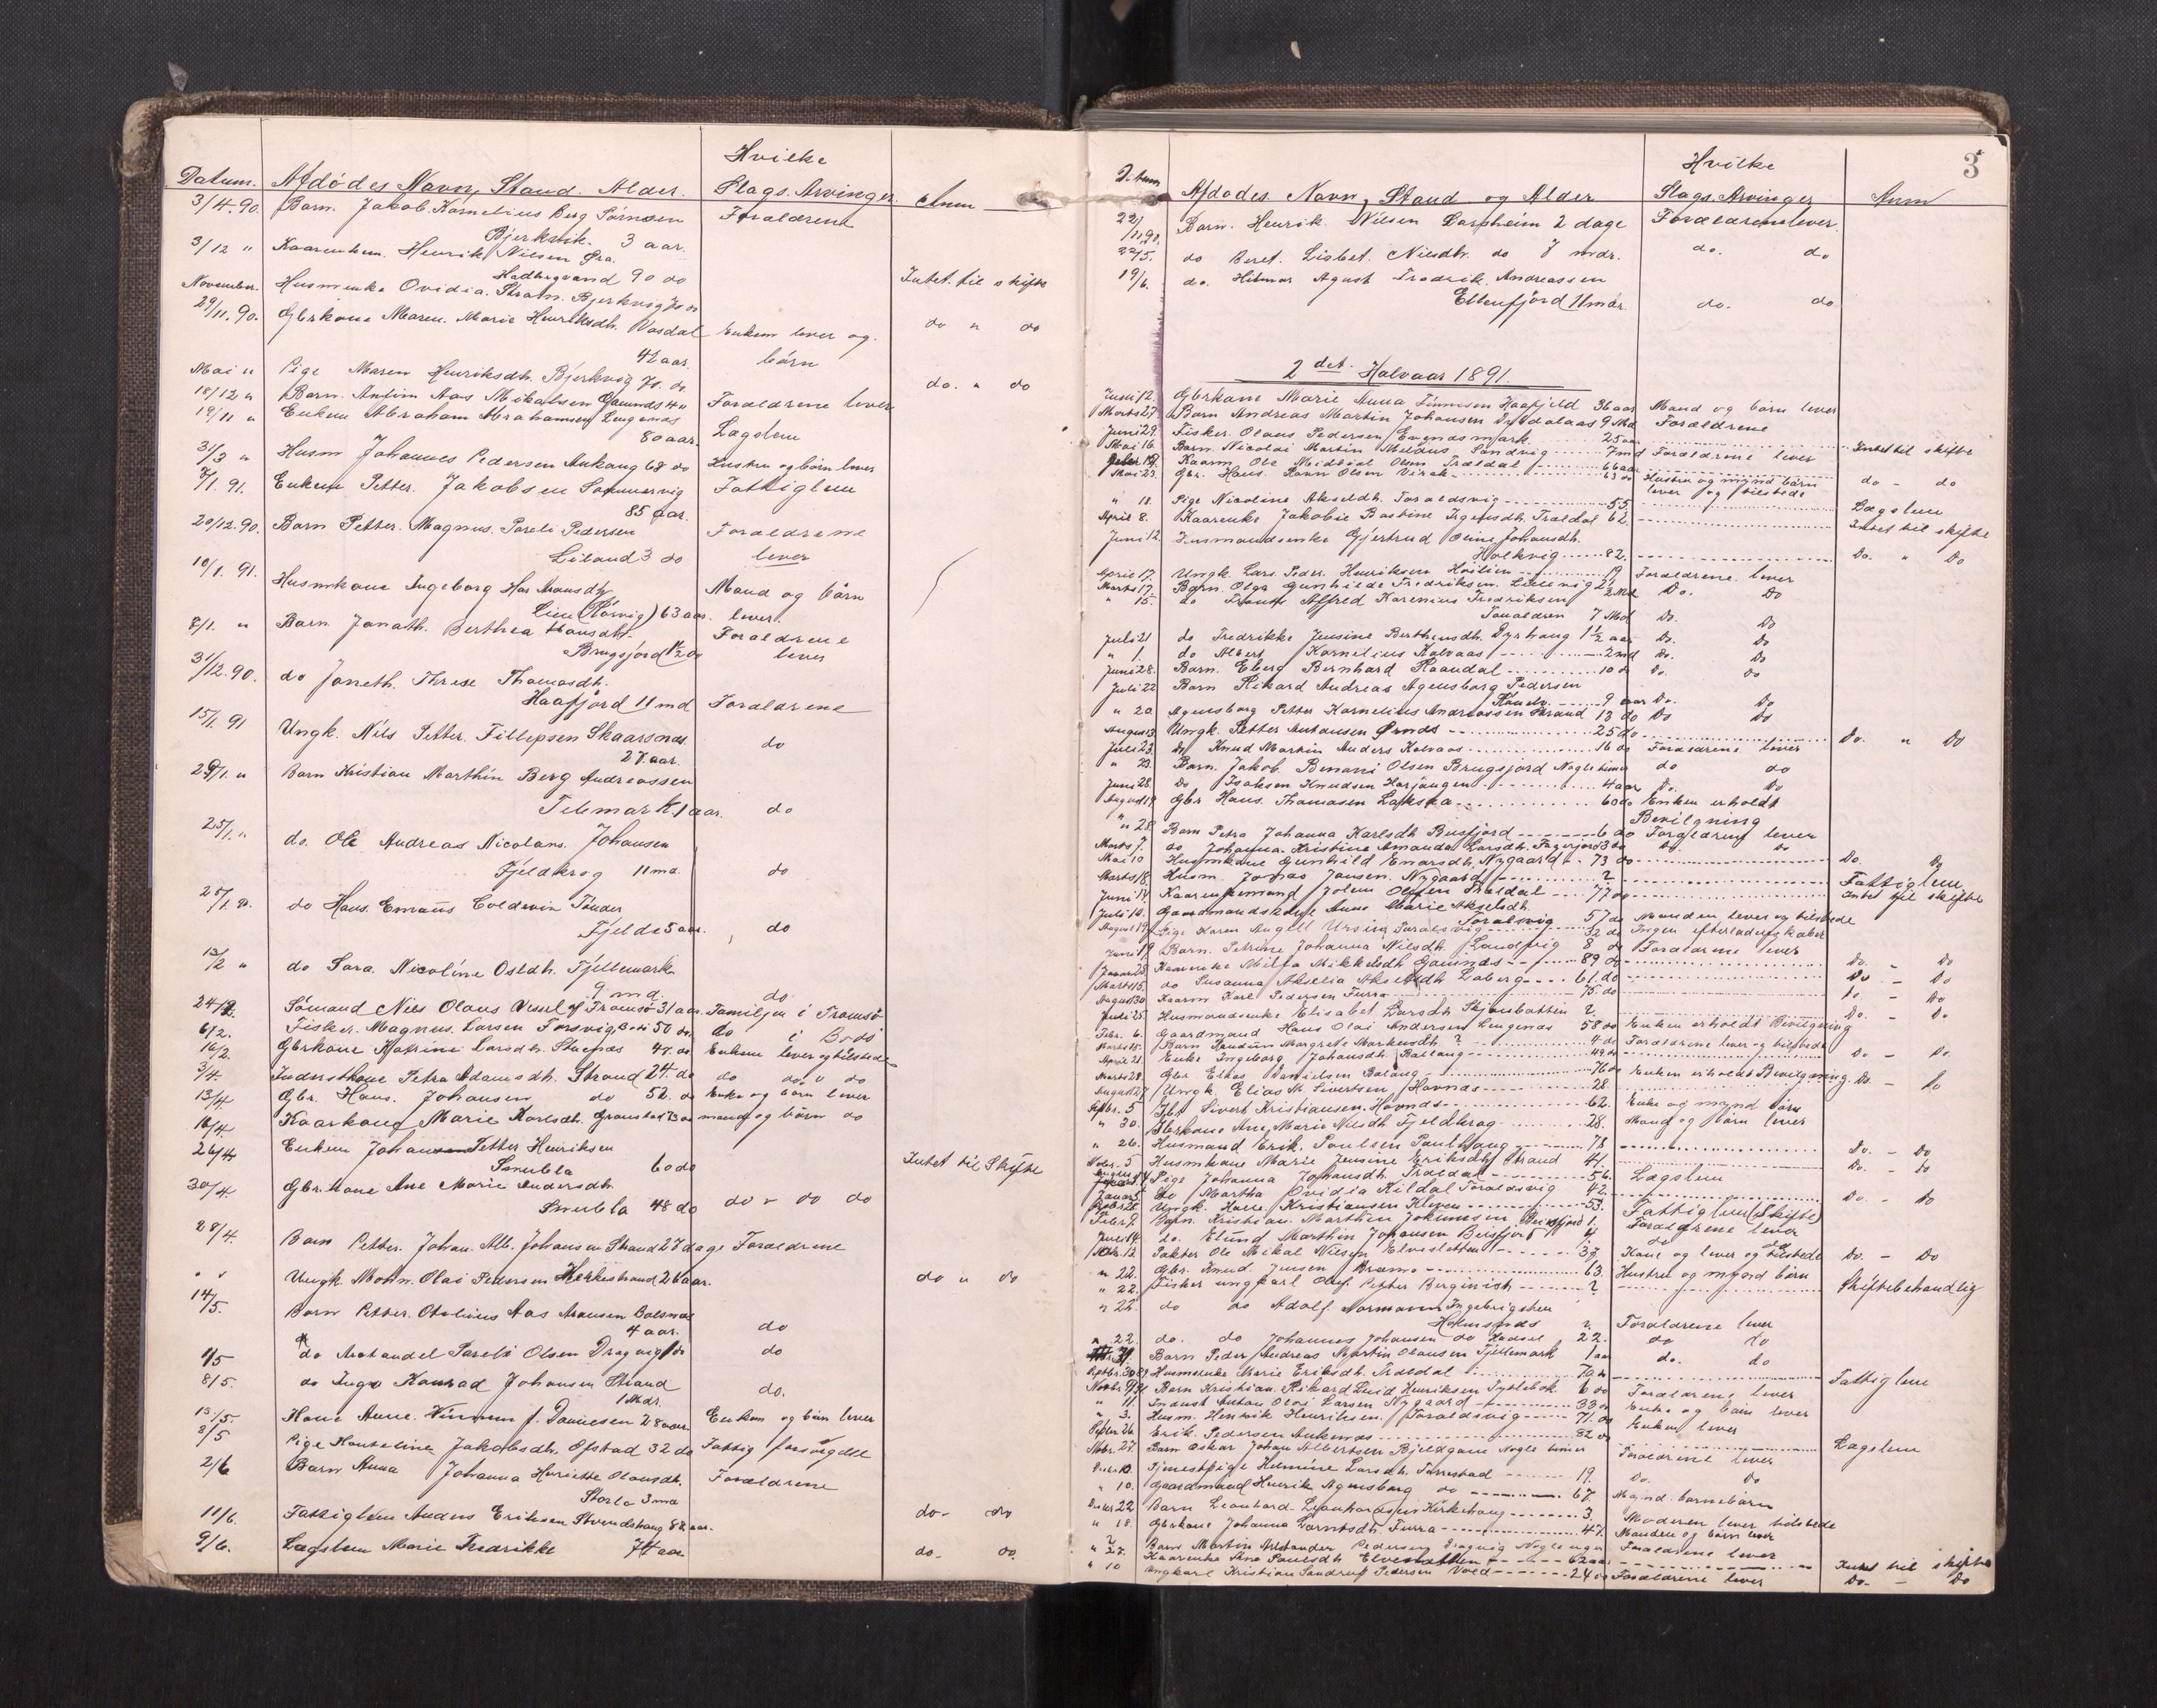 Hvilke
Datum. Afdødes Navn, Stand. Alder. Slags. Arvinger. Anm
3/4.90. Barn. Jakob. Kornelius Berg Sørnsen Forældrene
Bjerkvik. 3 aar.
3/12 " Kaarenkem. Henrik Nilsen Øra.
90 do Intet til skifte
November. Husmenke Ovidia. Bjerkvig 70 do
29/11.90. Gbrkone Maren. Marie Henriksdh. Vasdal Enkem lever og do " do
42 aar. børn
Mai " Pige Maren Henriksdh. Bjerkvig 70. do do. " do
18/12 " Barn. Anfim Aas Mikalsen 4 " Forældrene lever
19/11 " Enkem Abraham Abrahamsen Lengenæs
80 aar. Lægslem
31/3 " Husm Johannes Pedersen Ankang 68 do Hustru og børn lever
7/1. 91. Enkem Petter. Jakobsen Sommervig Fattiglem
85 aar.
20/12.90. Barn Petter. Magnus. Pareli Pedersen Forældrene
Liland 3 do lever
10/1. 91. Husmkone Ingeborg Mand og børn
63 aar. lever.
8/1. " Barn Jonath. Berthea Hansdh. Forældrene
Brugsjord 1½ do lever
31/12.90. do Janeth. Threse Thomasdh.
Haafjord 11 md Forældrene
15/1. 91 Ungk. Nils Petter. Fillepsen Skaarsnæs
27. aar. do
29/1. " Barn Kristian Marthin Berg Andreassen
Telemark 1 aar. do
25/1. " do. Ole Andreas Nicolaus. Johansen
Fjeldkrog 11 md. do
25/1. " do Hans. Emaüs Coldevin Tønder
Fjelde 5 aar. do
13/2 " do Sara. Nicoline Osldh. Fjellemark
9 md. do
24/2. Sømand Nils Olaus Vessel af Tromsø 31 aar. Familjen i Tromsø
6/2. Fisker. Magnus. Larsen Forsvig Bodø 50 do. do i Bodø
16/2. Gbrkone Katrine Larsdh. Stuenæs 47. do Enkem lever og tilstede
3/4. Inderstkone Petra Adamsdh. Strand 24. do do do " do
13/4. Gbr. Hans. Johansen do 52. do Enke og børn lever
16/4. Kaarkone Marie Karlsdh. 73 do mand og børn do
26/4 Enkem Johan Petter Henriksen
Smubla 60 do Intet til Skifte
30/4. Gbr. kone Ane Marie Andersdh.
Smubla 48 do do " do do
28/4. Barn Petter. Johan. Alb. Johansen Strand 27 dage Forældrene
" " Ungk. Olai Pedersen Herkestrand 26 aar. do " do
14/5. Barn Petter. Otelius Aas Aronsen Balsnæs
4 aar. do
1/5 do Arohandel Pareli Olsen Dragvig 1 do do
8/5. do Inga Konrad Johansen Strand
1 Mdr. do.
13/5. Kone Anne. f. Danielsen 28 aar Enkem og børn lever
8/5 Pige Hanseline Jakobsdh. Ofstad 32 do Fattig forsørgelse
2/6 Barn Anna Johanna Henriette Olausdh. Forældrene
Storla 3 md
11/6. Fattiglem Anders Eriksen Strandshaug 88 aar. do- do
9/6. Lægslem Marie Fredrikke 74 aar do- do.
3
Hvilke
Datum Afdødes. Navn, Stand og Alder Slags. Arvinger Anm
22/11.90. Barn. Henrik Nilsen 2 dage Forældrene lever.
22/5. do Beret. Lisbet. Nilsdh. do 7 mdr. do. do
19/6. do. Hilmar Agust Fredrik Andreassen
Ellenfjord 11 mdr. do. do
2det. Halvaar 1891.
Juni 12. Gbrkone Marie Anna Tønnesen Haafjeld 36 aar Mand og børn lever
Marts 27. Barn Andreas Martin Johansen 9 Md Forældrene
Juni 29. Fisker. Olaus Pedersen Evendsmark 25 aar Intet til skifte
Mai 16. Barn. Nicolai Martin Sandvig 7 md Forældrene lever
Kaarm Ole Olsen Trældal 66 aar do - do
Mai 23. Gbr. Hans Ravn Olsen Virak 63 do Hustru og mynd børn
lever og tilstede
" 18. Pige Nicoline Akseldh. Foraldsvig 55. Lægslem
April 8. Kaarenke Jakobie Bastine Trældal 62. Intet til skifte
Juni 12. Husmandsenke Gjertrud Oline Johansdh.
82. Do. " Do
April 17. Ungk. Lars. Peder. Henriksen 19 Forældrene lever
Marts 17. Barn. Olga Gunhilde Fredriksen. 2 Md Do. Do
" 15. do Alfred Karenius Fredriksen
7 Md Do. Do
Juli 21 do Fredrikke Jensine Berthensdh. Dyrhaug 1½ aar Do. Do
" 1. do Albert Kornelius Kalvaas 2 md Do. Do
Juni 28. Barn. Eberg Bernhard Raandal 10 do do
Juli 22 Barn Rikard Andreas Agensborg Pedersen
9 aar Do. Do
" 20. Agensborg Petter Kornelius Andreassen Strand 13 do Do Do
August 3. Ungk. Petter Antonsen 25 do Do. " Do
Juli 23. Do Knud Martin Anders Kalvaas 16 do Forældrene lever
" 23. Barn. Jakob. Benoni Olsen Brugsjord Nogle timer do do
Juni 28. Do Isaksen Knudsen Harjangen 4 aar Do. Do
August 19. Gbr Hans. Thomasen Lakska 60 do Enken erholdt
Bevilgning
" 28. Barn Petra Johanna Karlsdh Beisfjord 6 do Forældrene lever
Marts 7. do Johanna. Kristine Amanda Larsdh. Fagerjord 3 do Do. Do
Mai 10 Husmkone Gunhild Enarsdh. Nygaard 73 do Do. Do
Marts 18. Husm. Jonas Jansen. Nygaard ? Fattiglem
Juni 14. Kaarenkemand Johan Olsen Trældal 77 do Intet til skifte
Juli 10. Gaardmandskone Anne Marie Akseldh.
Foralsvig 57 do Manden lever og tilstede
August 19. Pige Karen Angell Ursin Foralsvig 32 do Ingen efterladenskaber
Juni 19. Barn. Petrine Johanna Nilsdh. Sandvig 8 do Forældrene lever
Januar 28. Kaarenke Milfa Mikkelsdh 89 do Do. - Do
Marts 15. do Susanna Akselia Akseldh Laberg 61. do Do - Do
August 30 Kaarm Karl Pedersen Furra 75. do Do - Do
Juli 25. Husmandsenke Elisabet Larsdh Skjombotten ? Do. - Do
Febr. 6. Gaardmand Hans Olai Andersen Lengenæs 58 do Enken erholdt Bevilgning
Marts 15. Barn Margrete Markusdh ? 4 do Forældrene lever og tilstede
April 21. Enke Ingeborg Johansdh. Ballang 49 do Do - Do.
Marts 29. Gbr. Elias Danielsen Balang 76 do Enken erholdt Bevilgning
August 27. Ungk Elias M. Sivertsen Havnæs 28. Do. - Do
Septbr. 5 Gbr Sivert Kristiansen. Havnæs 62. Enke og mynd børn
" 30. Gbrkone Ane Marie Nilsdh Fjeldkrog 28. Mand og børn lever
" 26. Husmand Erik. Paulsen Paulhaug 78 Do. - Do
Novbr. 5 Husmkone Marie Jensine Eriksdh Strand 41. Do. - Do
Pige Johanna Johansdh. Trældal 56. Lægslem
Januar 5. do Martha Ovidia Kildal Foraldsvig 42. Do - Do
Ungk. Hans Kristiansen Kleven 53. Fattiglem (Skifte)
Febr. 9. Barn. Kristian. Marthin Jakimsen Beisfjord 1. Forældrene lever
Juli 14. do. Elund Marthin Johansen Beisfjord 4 do do
Oktbr. 12 Pakter Ole Mikal Nilsen Elvesletten 37. Kone og lever og tilstede Do. - Do
" 22. Gbr. Knud. Jensen Bramo 63. Hustru og mynd børn
" 22. Fisker ungkarl Oluf Petter Berginist ? Skiftebehandlig
" 22. do do Adolf Normann Ingebrigtsen
Holmsnæs ". Forældrene lever
" 22. do. do Johannes Johansen do Hadsel 22. do do
Barn Peder Andreas Martin Olausen Fjellemark 1 aar do. do
Septbr. 30. Husmenke Marie Eriksdh. Trældal 70 do Fattiglem
Novbr. Barn Kristian. Rikard Luid Henriksen 6 do Forældrene lever
" 11. Indust Anton Olai Larsen Nygaard 33 do Enke og børn lever
" 3. Husm. Henrik Henriksen. Foraldsvig 71. do Enken lever
Septbr 26. Erik Pedersen Ankenæs 82 do Lægslem
Novbr. 27. Barn Oskar Johan Albertsen Bjeldgam Nogle timer Forældrene lever
Tjenestpige Helmine Larsdh. Tarrestad 19. Do. Do
" 10. Gaardmand Henrik Agensborg do 67. Mynd. barnebørn
22 Barn Leonhard. Leonhardsen Kirkehaug 3. Moderen lever tilstede
" 18. Gbrkone Johanna Larntsdh. Furra 47. Manden og børn lever
" ? Barn Martin Alekander Pedersen Dragvig Nogle uger Forældrene lever
" 27. Kaarenke Ane Paulsdh Elvenatten 62 aar Intet til skifte
" 10 Ungkarl Kristian Sandrup Pedersen Vold 24 do Forældrene lever Do. - Do